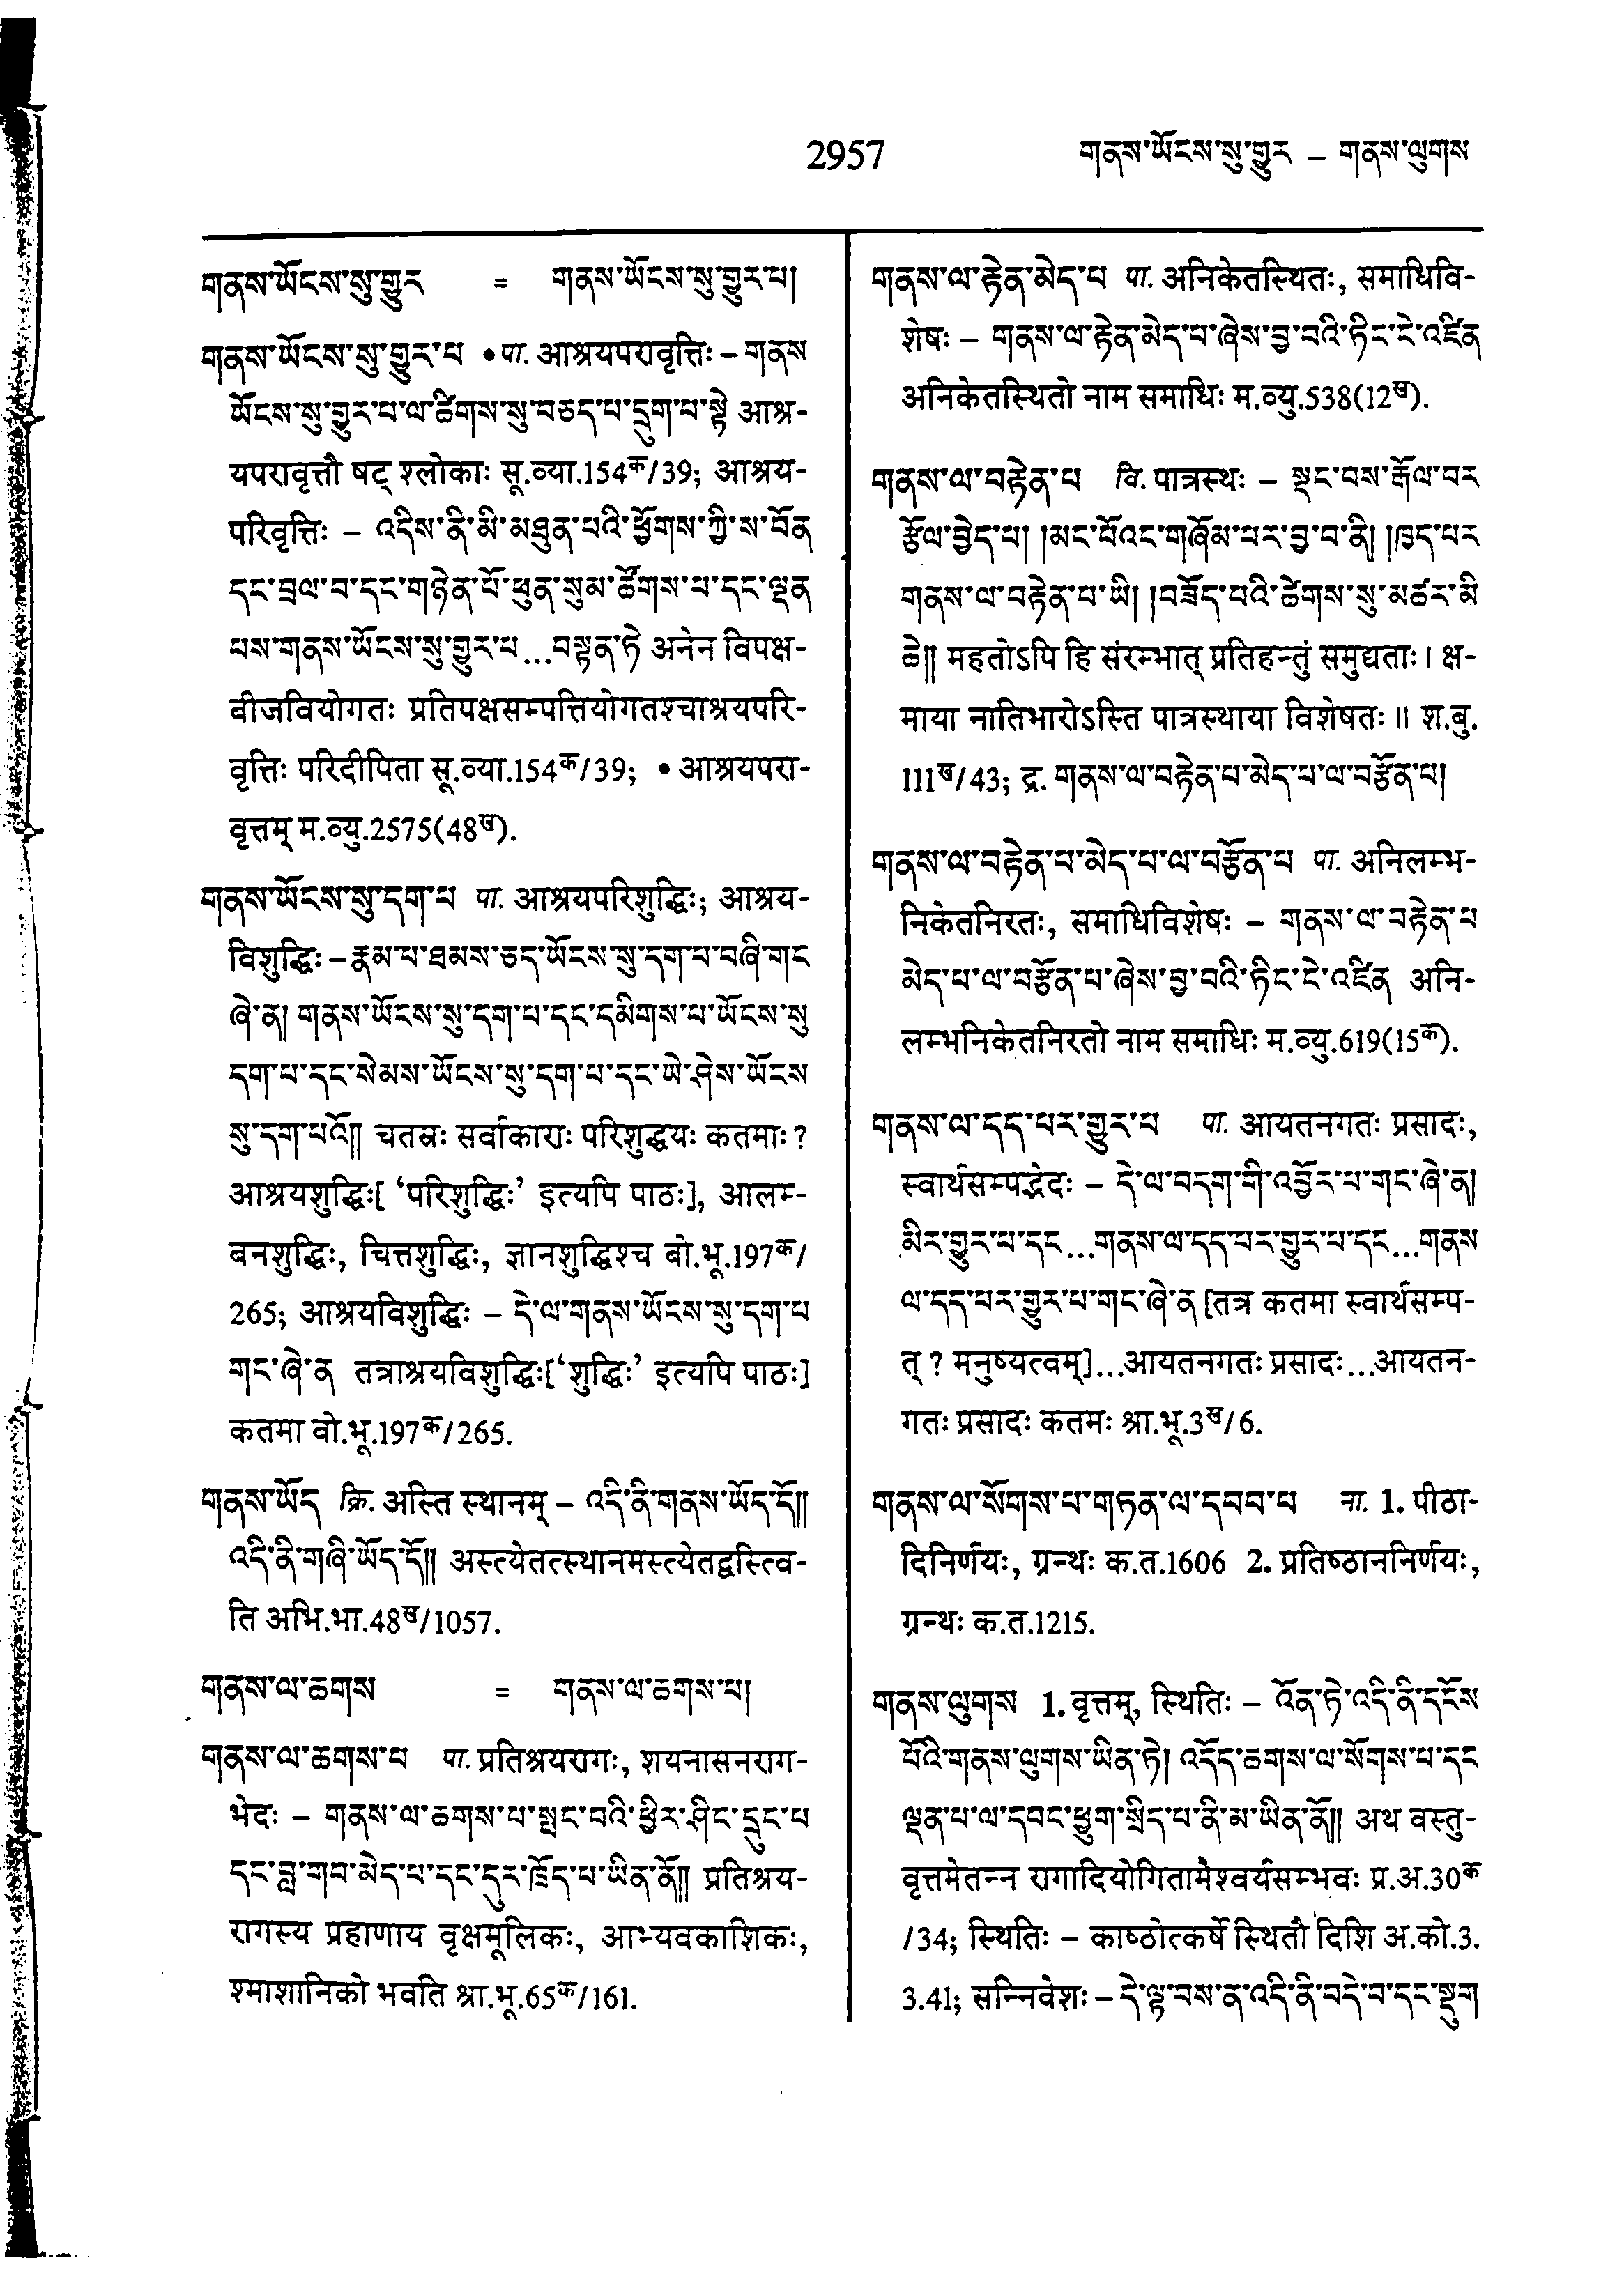 2957
གནས་ཡོངས་སུ་གྱུར – གནས་ལུགས
གནས་ཡོངས་སུ་གྱུར = གནས་ཡོངས་སུ་གྱུར་པ།
གནས་ཡོངས་སུ་གྱུར་པ • पा. आश्रयपरावृत्तिः – གནས
ཡོངས་སུ་གྱུར་པ་ལ་ཚིགས་སུ་བཅད་པ་དྲུག་པ་སྟེ आश्र-
यपरावृत्तौ षट् श्लोकाः सू.व्या.154क/39; आश्रय-
परिवृत्तिः – འདིས་ནི་མི་མཐུན་པའི་ཕྱོགས་ཀྱི་ས་བོན
དང་བྲལ་བ་དང་གཉེན་པོ་ཕུན་སུམ་ཚོགས་པ་དང་ལྡན
པས་གནས་ཡོངས་སུ་གྱུར་པ...བསྟན་ཏེ अनेन विपक्ष-
बीजवियोगतः प्रतिपक्षसम्पत्तियोगतश्चाश्रयपरि-
वृत्तिः परिदीपिता सू.व्या.154क/39; • आश्रयपरा-
वृत्तम् म.व्यु.2575(48ख).
གནས་ཡོངས་སུ་དག་པ पा. आश्रयपरिशुद्धिः; आश्रय-
विशुद्धिः – རྣམ་པ་ཐམས་ཅད་ཡོངས་སུ་དག་པ་བཞི་གང
ཞེ་ན། གནས་ཡོངས་སུ་དག་པ་དང་དམིགས་པ་ཡོངས་སུ
དག་པ་དང་སེམས་ཡོངས་སུ་དག་པ་དང་ཡེ་ཤེས་ཡོངས
སུ་དག་པའོ།། चतस्रः सर्वाकाराः परिशुद्धयः कतमाः ?
आश्रयशुद्धिः[ ‘परिशुद्धिः’ इत्यपि पाठः], आलम्-
बनशुद्धिः, चित्तशुद्धिः, ज्ञानशुद्धिश्च बो.भू.197क/
265; आश्रयविशुद्धिः – དེ་ལ་གནས་ཡོངས་སུ་དག་པ
གང་ཞེ་ན तत्राश्रयविशुद्धिः[‘शुद्धिः’ इत्यपि पाठः]
कतमा बो.भू.197क/265.
གནས་ཡོད क्रि. अस्ति स्थानम् – འདི་ནི་གནས་ཡོད་དོ།།
འདི་ནི་གཞི་ཡོད་དོ།། अस्त्येतत्स्थानमस्त्येतद्वस्त्वि-
ति अभि.भा.48ख/1057.
གནས་ལ་ཆགས = གནས་ལ་ཆགས་པ།
གནས་ལ་ཆགས་པ पा. प्रतिश्रयरागः, शयनासनराग-
भेदः – གནས་ལ་ཆགས་པ་སྤང་བའི་ཕྱིར་ཤིང་དྲུང་པ
དང་བླ་གབ་མེད་པ་དང་དུར་ཁྲོད་པ་ཡིན་ནོ།། प्रतिश्रय-
रागस्य प्रहाणाय वृक्षमूलिकः, आभ्यवकाशिकः,
श्माशानिको भवति श्रा.भू.65क/161.
གནས་ལ་རྟེན་མེད་པ पा. अनिकेतस्थितः, समाधिवि-
शेषः – གནས་ལ་རྟེན་མེད་པ་ཞེས་བྱ་བའི་ཏིང་ངེ་འཛིན
अनिकेतस्थितो नाम समाधिः म.व्यु.538(12ख).
གནས་ལ་བརྟེན་པ वि. पात्रस्थः – སྡང་བས་རྒོལ་བར
རྩོལ་བྱེད་པ། །མང་པོའང་གཞོམ་པར་བྱ་བ་ནི། །ཁྱད་པར
གནས་ལ་བརྟེན་པ་ཡི། །བཟོད་པའི་ཚེགས་སུ་མཚར་མི
ཆེ།། महतोऽपि हि संरम्भात् प्रतिहन्तुं समुद्यताः । क्ष-
माया नातिभारोऽस्ति पात्रस्थाया विशेषतः ॥ श.बु.
111ख/43; द्र. གནས་ལ་བརྟེན་པ་མེད་པ་ལ་བརྩོན་པ།
གནས་ལ་བརྟེན་པ་མེད་པ་ལ་བརྩོན་པ पा. अनिलम्भ-
निकेतनिरतः, समाधिविशेषः – གནས་ལ་བརྟེན་པ
མེད་པ་ལ་བརྩོན་པ་ཞེས་བྱ་བའི་ཏིང་ངེ་འཛིན अनि-
लम्भनिकेतनिरतो नाम समाधिः म.व्यु.619(15क).
གནས་ལ་དད་པར་གྱུར་པ पा. आयतनगतः प्रसादः,
स्वार्थसम्पद्भेदः – དེ་ལ་བདག་གི་འབྱོར་པ་གང་ཞེ་ན།
མིར་གྱུར་པ་དང...གནས་ལ་དད་པར་གྱུར་པ་དང...གནས
ལ་དད་པར་གྱུར་པ་གང་ཞེ་ན [तत्र कतमा स्वार्थसम्प-
त् ? मनुष्यत्वम्]...आयतनगतः प्रसादः...आयतन-
गतः प्रसादः कतमः श्रा.भू.3ख/6.
གནས་ལ་སོགས་པ་གཏན་ལ་དབབ་པ ना. 1. पीठा-
दिनिर्णयः, ग्रन्थः क.त.1606 2. प्रतिष्ठाननिर्णयः,
ग्रन्थः क.त.1215.
གནས་ལུགས 1. वृत्तम्, स्थितिः – འོན་ཏེ་འདི་ནི་དངོས
པོའི་གནས་ལུགས་ཡིན་ཏེ། འདོད་ཆགས་ལ་སོགས་པ་དང
ལྡན་པ་ལ་དབང་ཕྱུག་སྲིད་པ་ནི་མ་ཡིན་ནོ།། अथ वस्तु-
वृत्तमेतन्न रागादियोगितामैश्वर्यसम्भवः प्र.अ.30क
/34; स्थितिः – काष्ठोत्कर्षे स्थितौ दिशि अ.को.3.
3.41; सन्निवेशः – དེ་ལྟ་བས་ན་འདི་ནི་བདེ་བ་དང་སྡུག